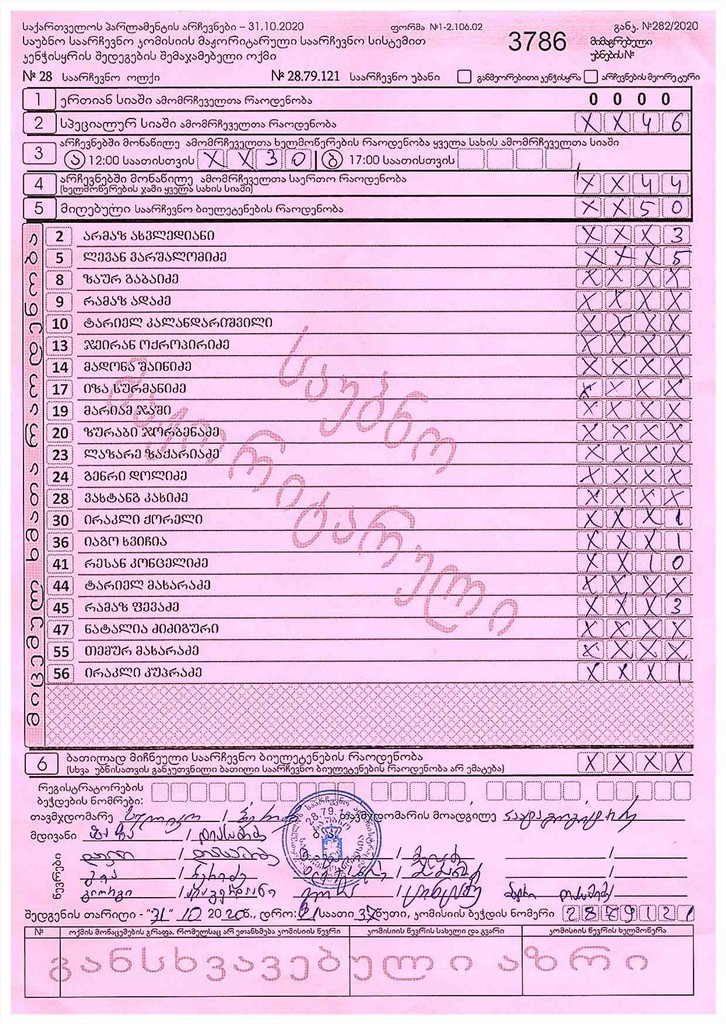 საქართველოს პარლამენტის არჩევნები – 31.10.2020 ფორმა №1-2.106.02 განკ. №282/2020
საუბნო საარჩევნო კომისიის მაჟორიტარული საარჩევნო სისტემით 3786 მიმაგრებული
კენჭისყრის შედეგების შემაჯამებელი ოქმი უბნების№
№ 28 საარჩევნო ოლქი № 28.79.121 საარჩევნო უბანი განმეორებითი კენჭისყრა არჩევნების მეორე ტური
1 ერთიან სიაში ამომრჩეველთა რაოდენობა 0 0 0 0
2 სპეციალურ სიაში ამომრჩეველთა რაოდენობა X X 4 6
3 არჩევნებში მონაწილე ამომრჩეველთა ხელმოწერების რაოდენობა ყველა სახის ამომრჩეველთა სიაში
ა 12:00 საათისთვის X X 3 0 ბ 17:00 საათისთვის
4 არჩევნებში მონაწილე ამომრჩეველთა საერთო რაოდენობა X X 4 4
(ხელმოწერების ჯამი ყველა სახის სიაში)
5 მიღებული საარჩევნო ბიულეტენების რაოდენობა X X 5 0
მიცემულ ხმათა რაოდენობა
2 არმაზ ახვლედიანი X X X 3
5 ლევან ვარშალომიძე X X X 5
8 ზაურ გაბაიძე X X X X
9 რამაზ ადაძე X X X X
10 ტარიელ კალანდარიშვილი X X X X
13 ჯეირან ოქროპირიძე X X X X
14 მადონა შაინიძე X X X X
17 იზა სურმანიძე X X X X
19 მარიამ ჯაში X X X X
20 ზურაბი ჯორბენაძე X X X X
23 ლაზარე ზაქარიაძე X X X X
24 გენრი დოლიძე X X X X
28 ვახტანგ კახიძე X X X X
30 ირაკლი ჟორელი X X X 1
36 იაგო ხვიჩია X X X 1
41 რესან კონცელიძე X X 1 0
44 ტარიელ მახარაძე X X X X
45 რამაზ ფევაძე X X X 3
47 ნატალია ძიძიგური X X X X
55 თემურ მახარაძე X X X X
56 ირაკლი კუპრაძე X X X 1
საუბნო
მაჟორიტარული
6 ბათილად მიჩნეული საარჩევნო ბიულეტენების რაოდენობა X X X X
(სხვა უბნისათვის განკუთვნილი ბათილი საარჩევნო ბიულეტენების რაოდენობა არ ემატება)
რეგისტრატორების
ბეჭდების ნომრები:
თავმჯდომარე / თავმჯდომარის მოადგილე
მდივანი /
წევრები
გია /
გიორგი /
შედგენის თარიღი - "31" 10 2020წ, დრო: 21 საათი 37 წუთი, კომისიის ბეჭდის ნომერი 2879121
№ ოქმის მონაცემების გრაფა, რომელსაც არ ეთანხმება კომისიის წევრი კომისიის წევრის სახელი და გვარი კომისიის წევრის ხელმოწერა
განსხვავებული აზრი